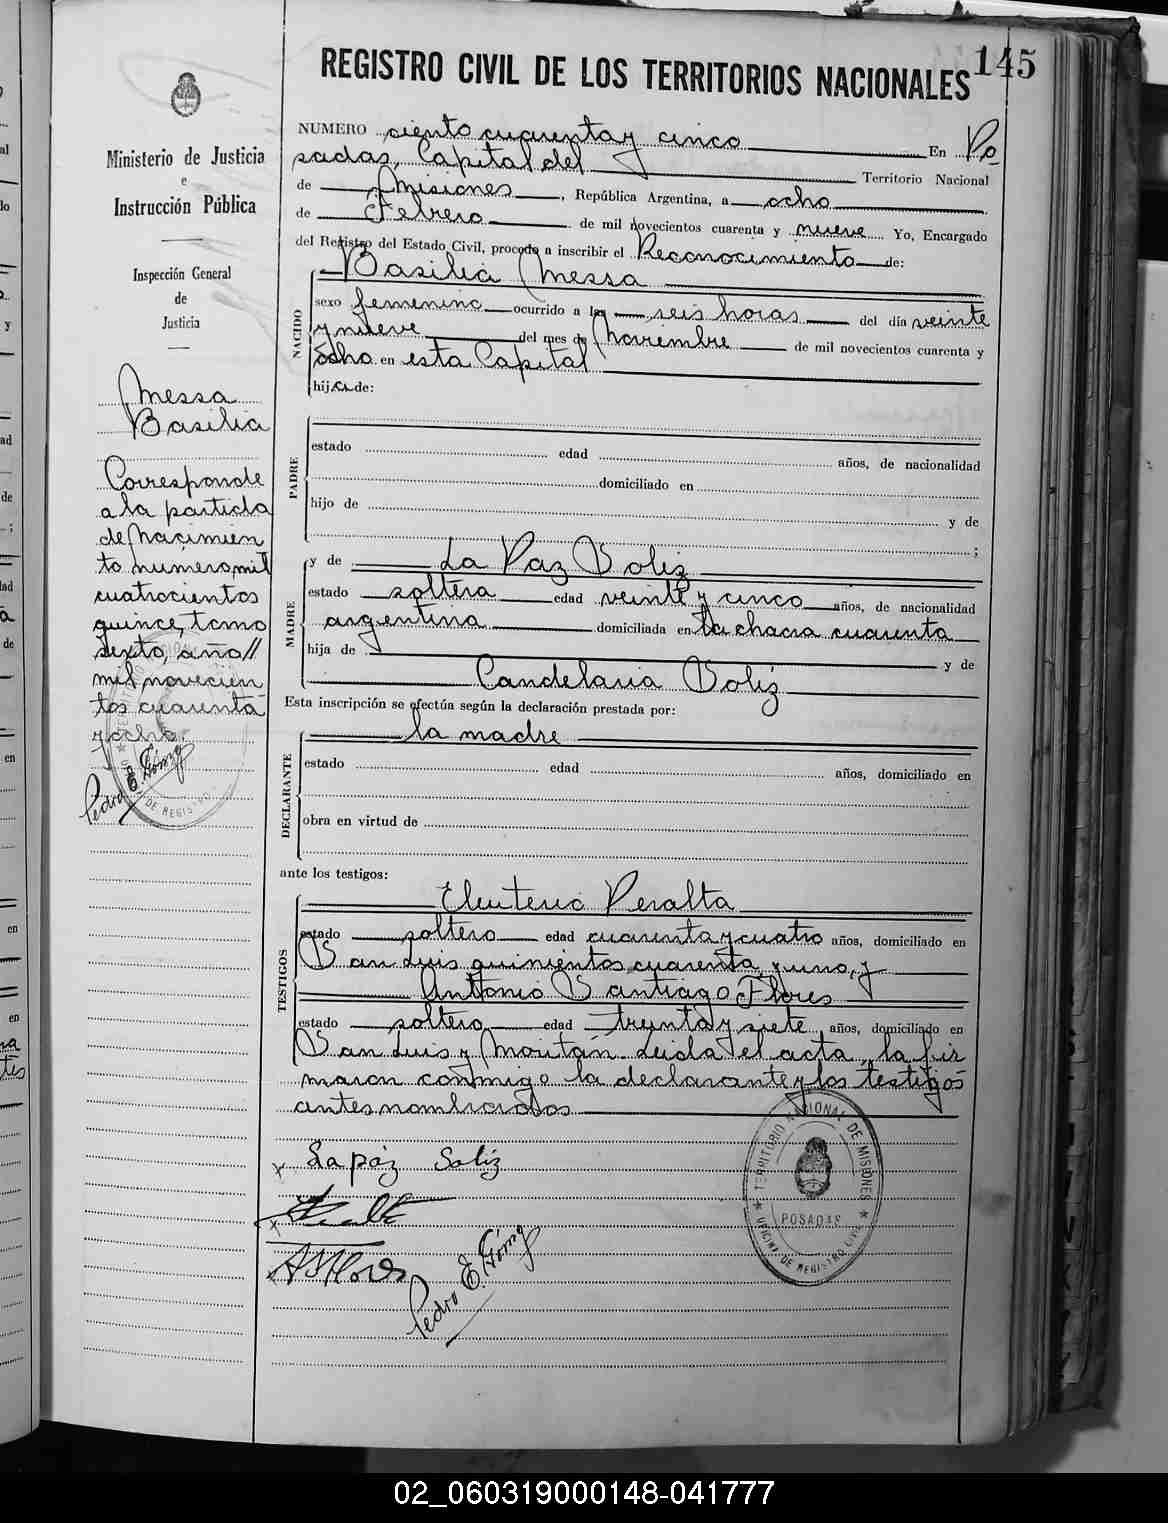 145
REGISTRO CIVIL DE LOS TERRITORIOS NACIONALES
Ministerio de Justicia
e
Instrucción Pública
Inspección General
de
Justicia
Messa
Basilia
Corresponde
a la partida
de Nacimien
to numero mil
cuatrocientos
quince, tomo
sexto, año//
mil novecien
tos cuarenta
y ocho.
Pedro E. Gómez
NUMERO ciento cuarenta y cinco En Po
sadas, Capital del Territorio Nacional
de Misiones, República Argentina, a ocho
de Febrero de mil novecientos cuarenta y nueve Yo, Encargado
del Registro del Estado Civil, procedo a inscribir el Reconocimiento de:
Basilia Messa
NACIDO
sexo femenino ocurrido a las seis horas del día veinte
y nueve del mes de Noviembre de mil novecientos cuarenta y
ocho en esta Capital
hija de:
PADRE
estado edad años, de nacionalidad
domiciliado en
hijo de y de
;
MADRE
y de La Paz Soliz
estado soltera edad veinte y cinco años, de nacionalidad
argentina domiciliada en la chacra cuarenta
hija de y de
Candelaria Soliz
Esta inscripción se efectúa según la declaración prestada por:
la madre
DECLARANTE
estado edad años, domiciliado en
obra en virtud de
ante los testigos:
TESTIGOS
Eleuterio Peralta
estado soltero edad cuarenta y cuatro años, domiciliado en
San Luis quinientos cuarenta y uno, y
Antonio Santiago Flores
estado soltero edad treinta y siete años, domiciliado en
San Luis y Moritán. Leida el acta, la fir
maron conmigo la declarante y los testigos
antes nombrados
La paz Soliz
Pedro E. Gómez
TERRITORIO NACIONAL DE MISIONES
POSADAS
OFICINA DE REGISTRO CIVIL
02_060319000148-041777